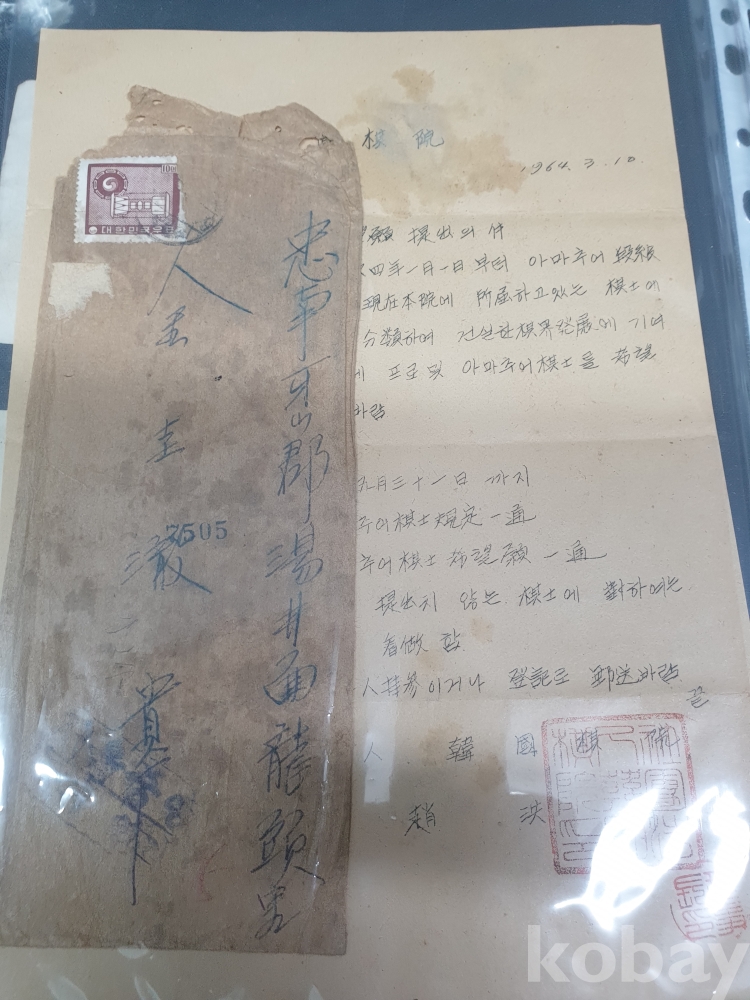 棋院
1964. 3. 10.
願 提出의 件
四年一月一日 부터 아마추어 段級
現在本院에 所屬하고있는 棋士에
分類하여 건실한棋界發展에 기여
에 프로 및 아마추어棋士를 希望
바람
三十一日 까지
추어棋士規定 一通
추어棋士 希望願 一通
提出치 않는 棋士에 對하여는
看做 함
人持參이거나 登記로 郵送바람
끝
人 韓 國 棋
趙 洪
10
대한민국우표
忠南牙山郡湯井面龍頭里
圭 澈
7505
kobay